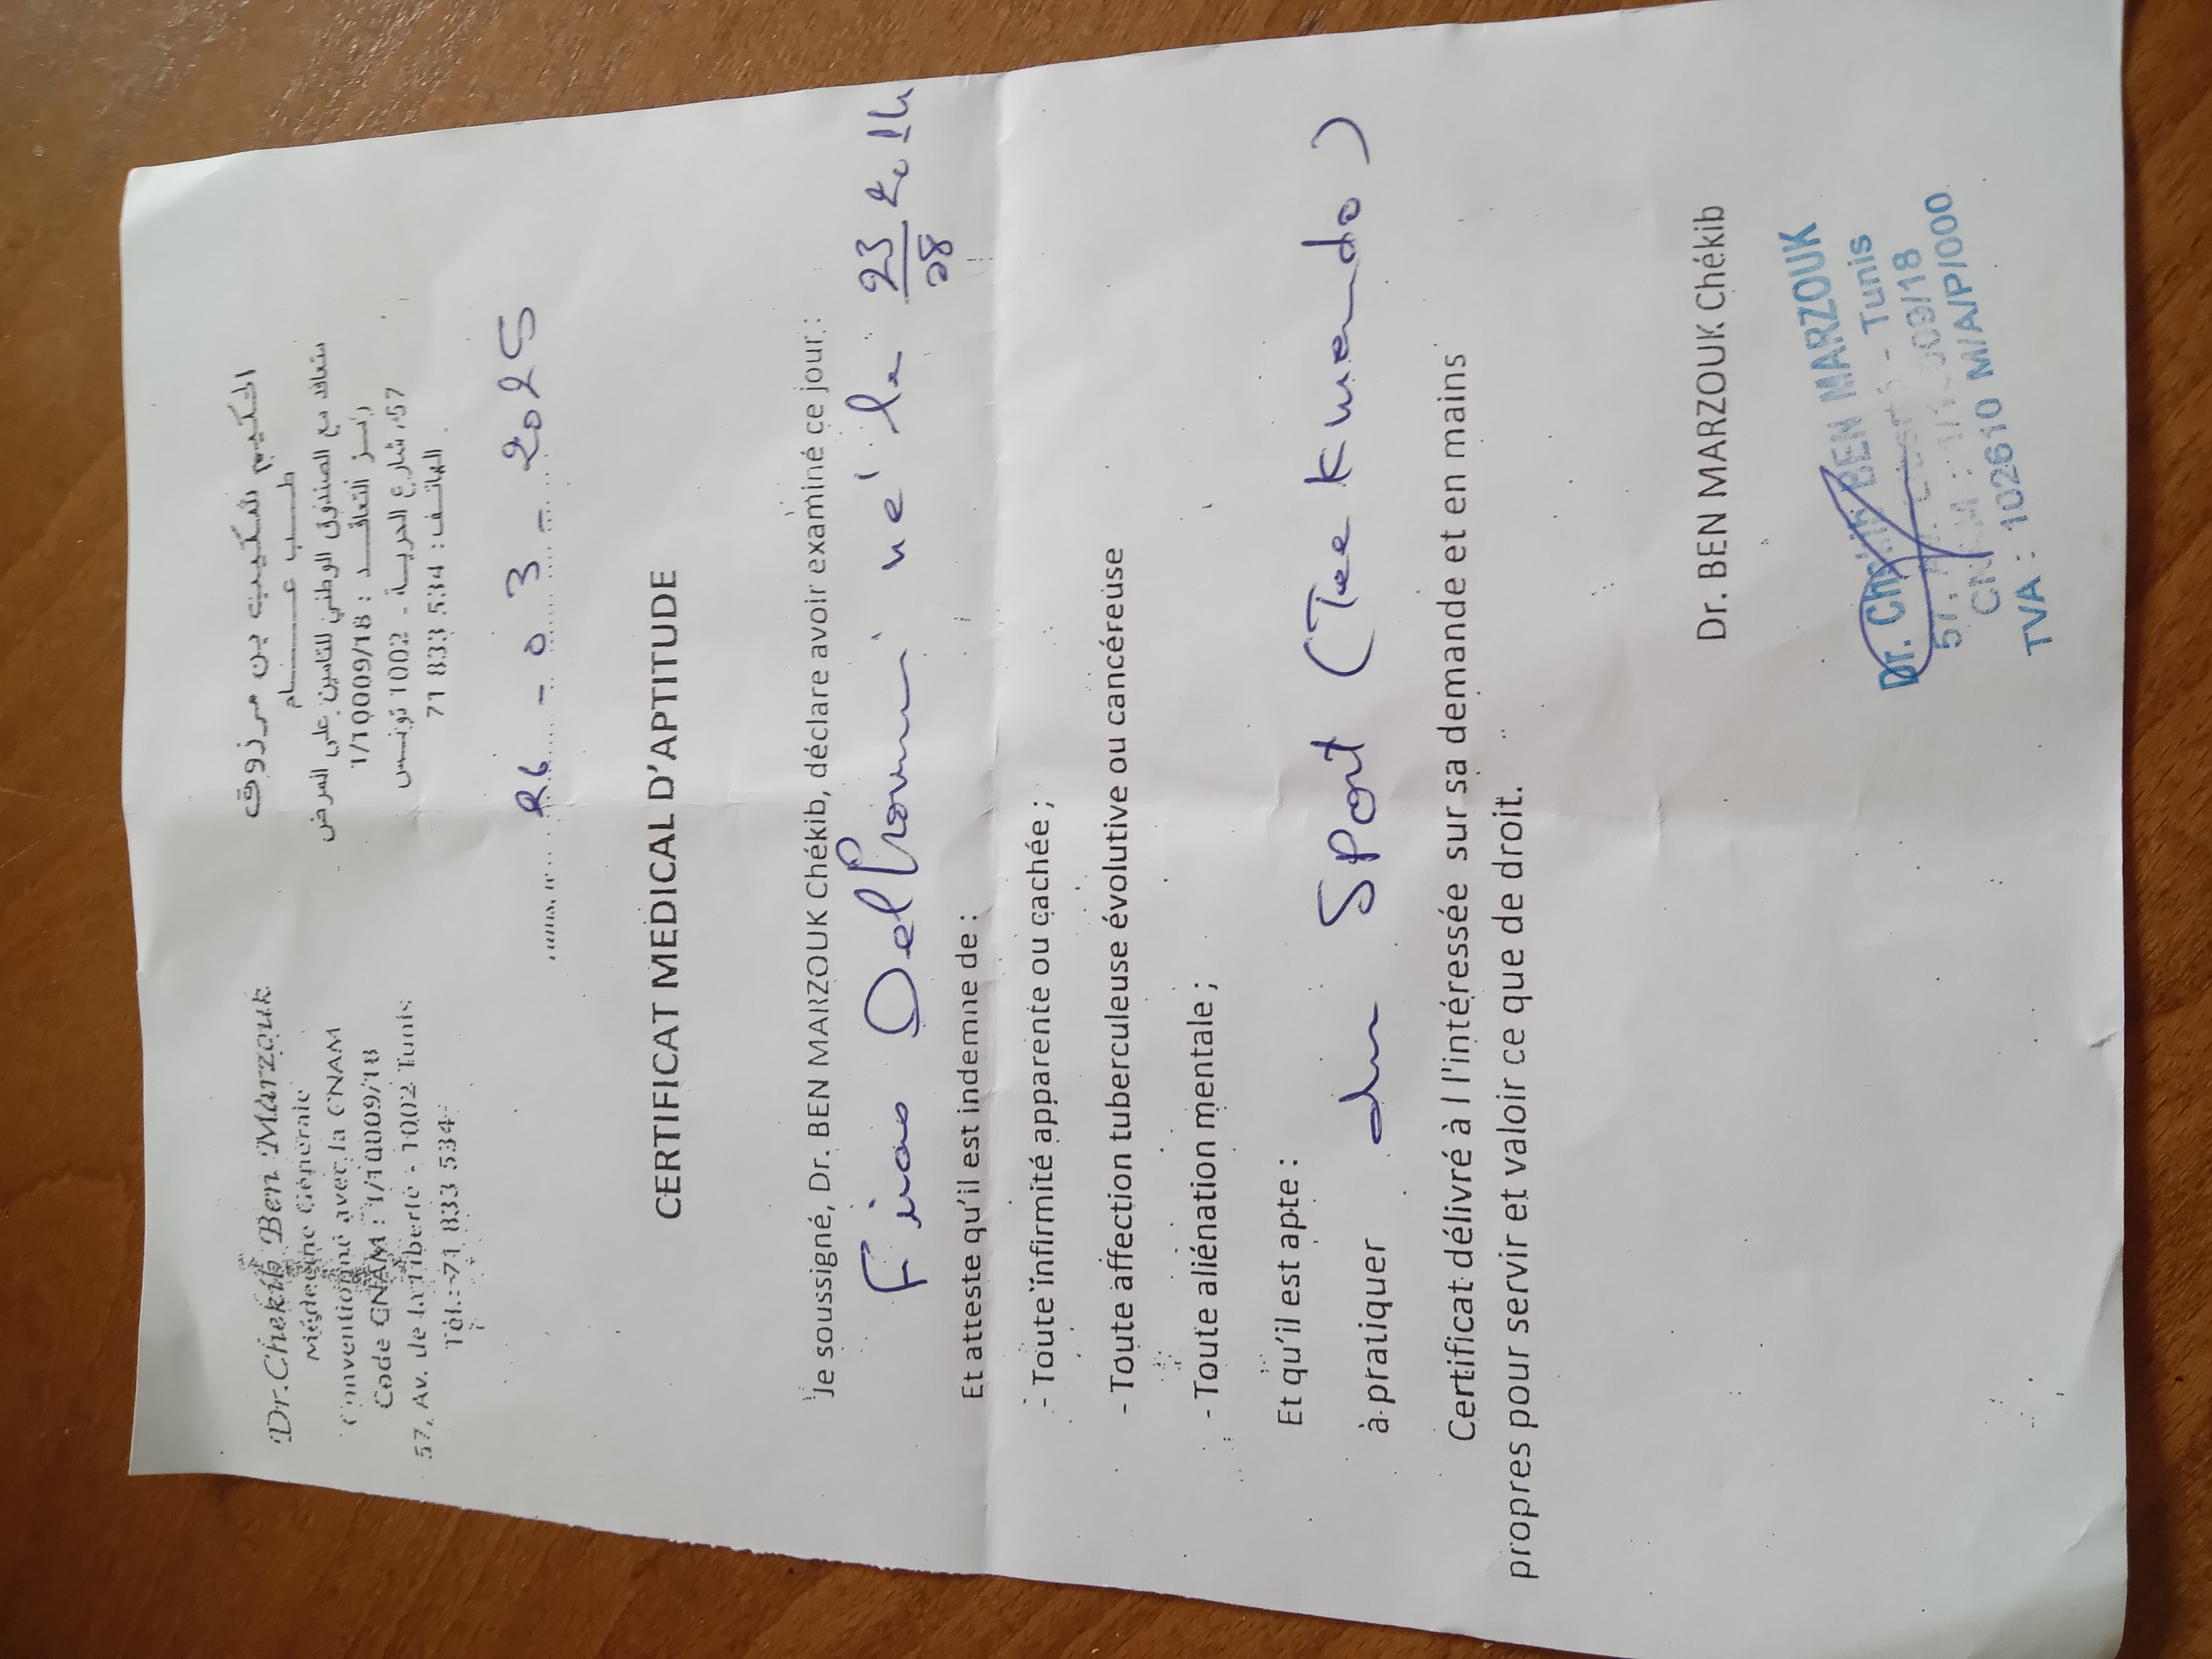 Dr.Chekib Ben Marzouk
Médecine Générale
Conventionné avec la CNAM
Code CNAM : 1/10009/18
57, Av. de la liberté - 1002 Tunis
Tél.: 71 833 534
الحكيم شكيب بن مرزوق
طـــب عـــــام
متعاقد مع الصندوق الوطني للتامين على المرض
رمــز التعاقــد : 1/10009/18
57، شارع الحريــة - 1002 تونــس
الهاتــف : 71 833 534
26 - 03 - 2025
CERTIFICAT MEDICAL D'APTITUDE
Je soussigné, Dr. BEN MARZOUK Chékib, déclare avoir examiné ce jour :
Firas né le 23/08 2014
Et atteste qu'il est indemne de :
- Toute infirmité apparente ou cachée ;
- Toute affection tuberculeuse évolutive ou cancéreuse
- Toute aliénation mentale ;
Et qu'il est apte :
à pratiquer du Sport (Taekwando)
Certificat délivré à l'intéressée sur sa demande et en mains
propres pour servir et valoir ce que de droit.
Dr. BEN MARZOUK Chékib
Dr. Chékib BEN MARZOUK
57, - Tunis
CNAM : 1/10009/18
TVA : 102610 M/A/P/000